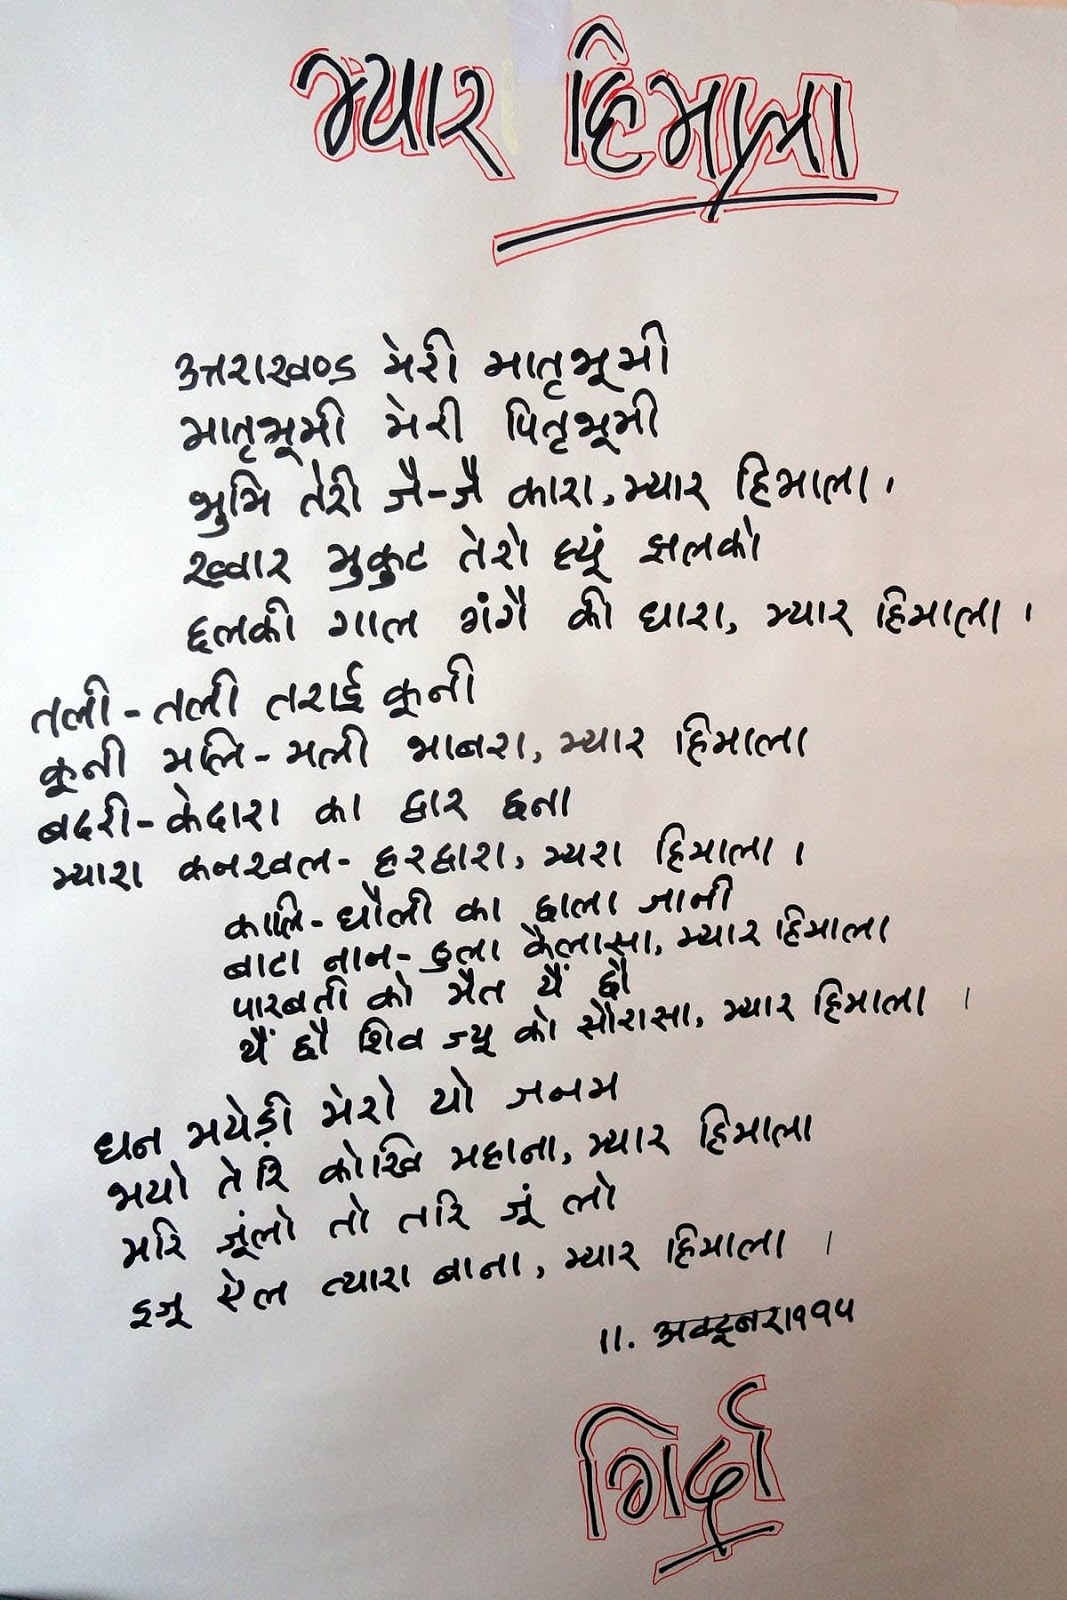 म्यार हिमाला
उत्तराखण्ड मेरी मातृभूमी
मातृभूमी मेरी पितृभूमी
भुमि तेरी जै-जै कारा, म्यार हिमाला।
ख्वार मुकुट तेरो ह्यूं झलको
छलकी गाल गंगै की धारा, म्यार हिमाला।
तली-तली तराई कूनी
कूनी मलि-मली भाबरा, म्यार हिमाला
बदरी-केदारा का द्वार छना
म्यारा कनखल-हरद्वारा, म्यरा हिमाला।
कालि-धौली का छाला जानी
बाटा नान-ठुला कैलासा, म्यार हिमाला
पारबती को मैत यैं छौ
यैं छौ शिव ज्यू को सौरासा, म्यार हिमाला।
धन मयेड़ी मेरो यो जनम
भयो तेरि कोखि महाना, म्यार हिमाला
मरि जूंलो तो तरि जूं लो
इजू ऐल त्यारा बाना, म्यार हिमाला।
11. अक्टूबर
गिर्दा